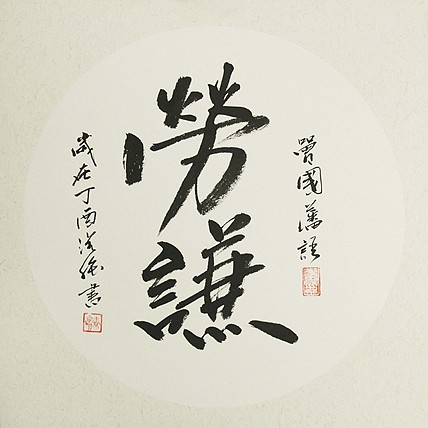 勞謙
曾國藩語
歲在丁酉洪強書